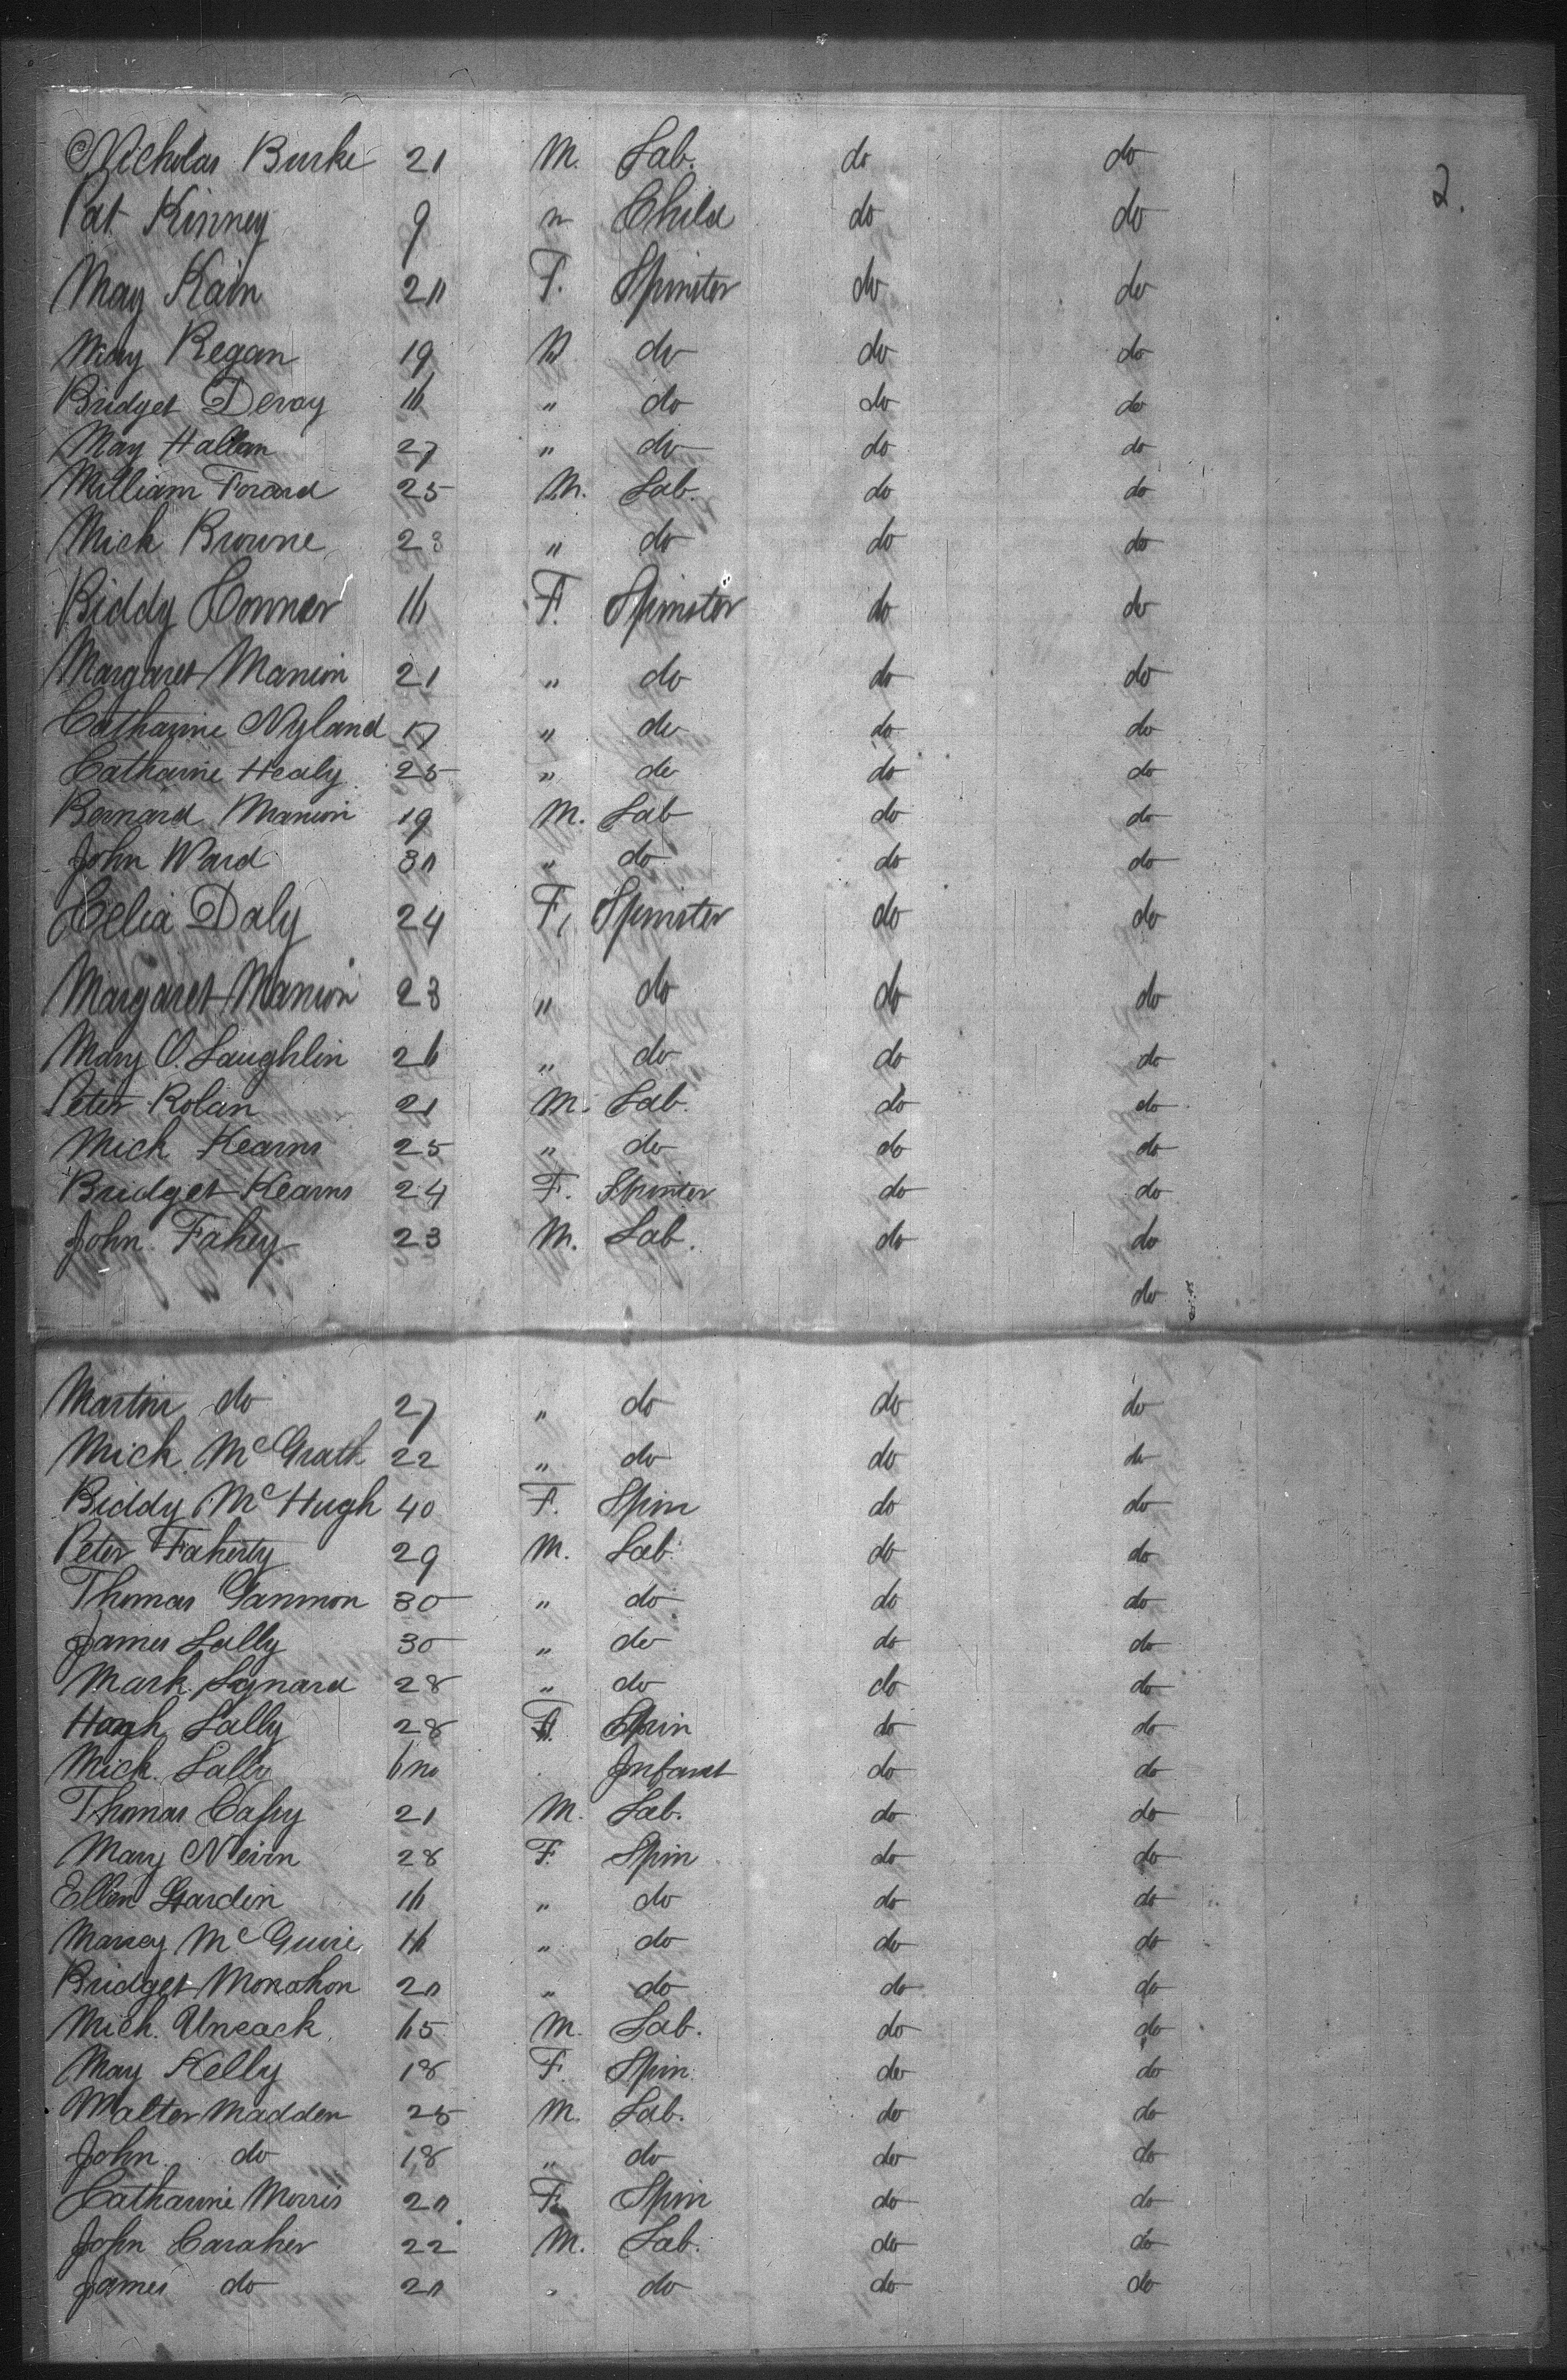 Nicholas Burke 21 M. Lab. do do
2.
Pat Kinney 9 " Child do do
May Kain 20 F. Spinster do do
May Regan 19 " do do do
Bridget Devoy 16 " do do do
May Hallan 27 " do do do
William Forard 25 M. Lab. do do
Mick Browne 23 " do do do
Biddy Conner 16 F. Spinster do do
Margaret Manion 21 " do do do
Catharine Nyland 17 " do do do
Catharine Healy 25 " do do do
Bernard Manion 19 M. Lab do do
John Ward 30 " do do do
Celia Daly 24 F. Spinster do do
Margaret Manion 23 " do do do
Mary O. Laughlin 26 " do do do
Peter Rolan 21 M. Lab. do do
Mick Kearns 25 " do do do
Bridget Kearns 24 F. Spinster do do
John Fahey 23 M. Lab. do do
do
Martin do 27 " do do do
Mick McGrath 22 " do do do
Biddy McHugh 40 F. Spin do do
Peter Faherty 29 M. Lab. do do
Thomas Gannon 30 " do do do
James Lally 30 " do do do
Mark Lynard 28 " do do do
Hogh Lally 28 F. Spin do do
Mick. Lally 6 mo Infant do do
Thomas Cafry 21 M. Lab. do do
Mary Nevin 28 F. Spin do do
Ellen Gardin 16 " do do do
McGuire 16 " do do do
Bridget Monahon 20 " do do do
Mich. Uneack 65 M. Lab. do do
May Kelly 18 F. Spin. do do
Walter Madden 25 M. Lab. do do
John do 18 " do do do
Catharine Morris 20 F. Spin do do
John Caraher 22 M. Lab. do do
James do 20 " do do do